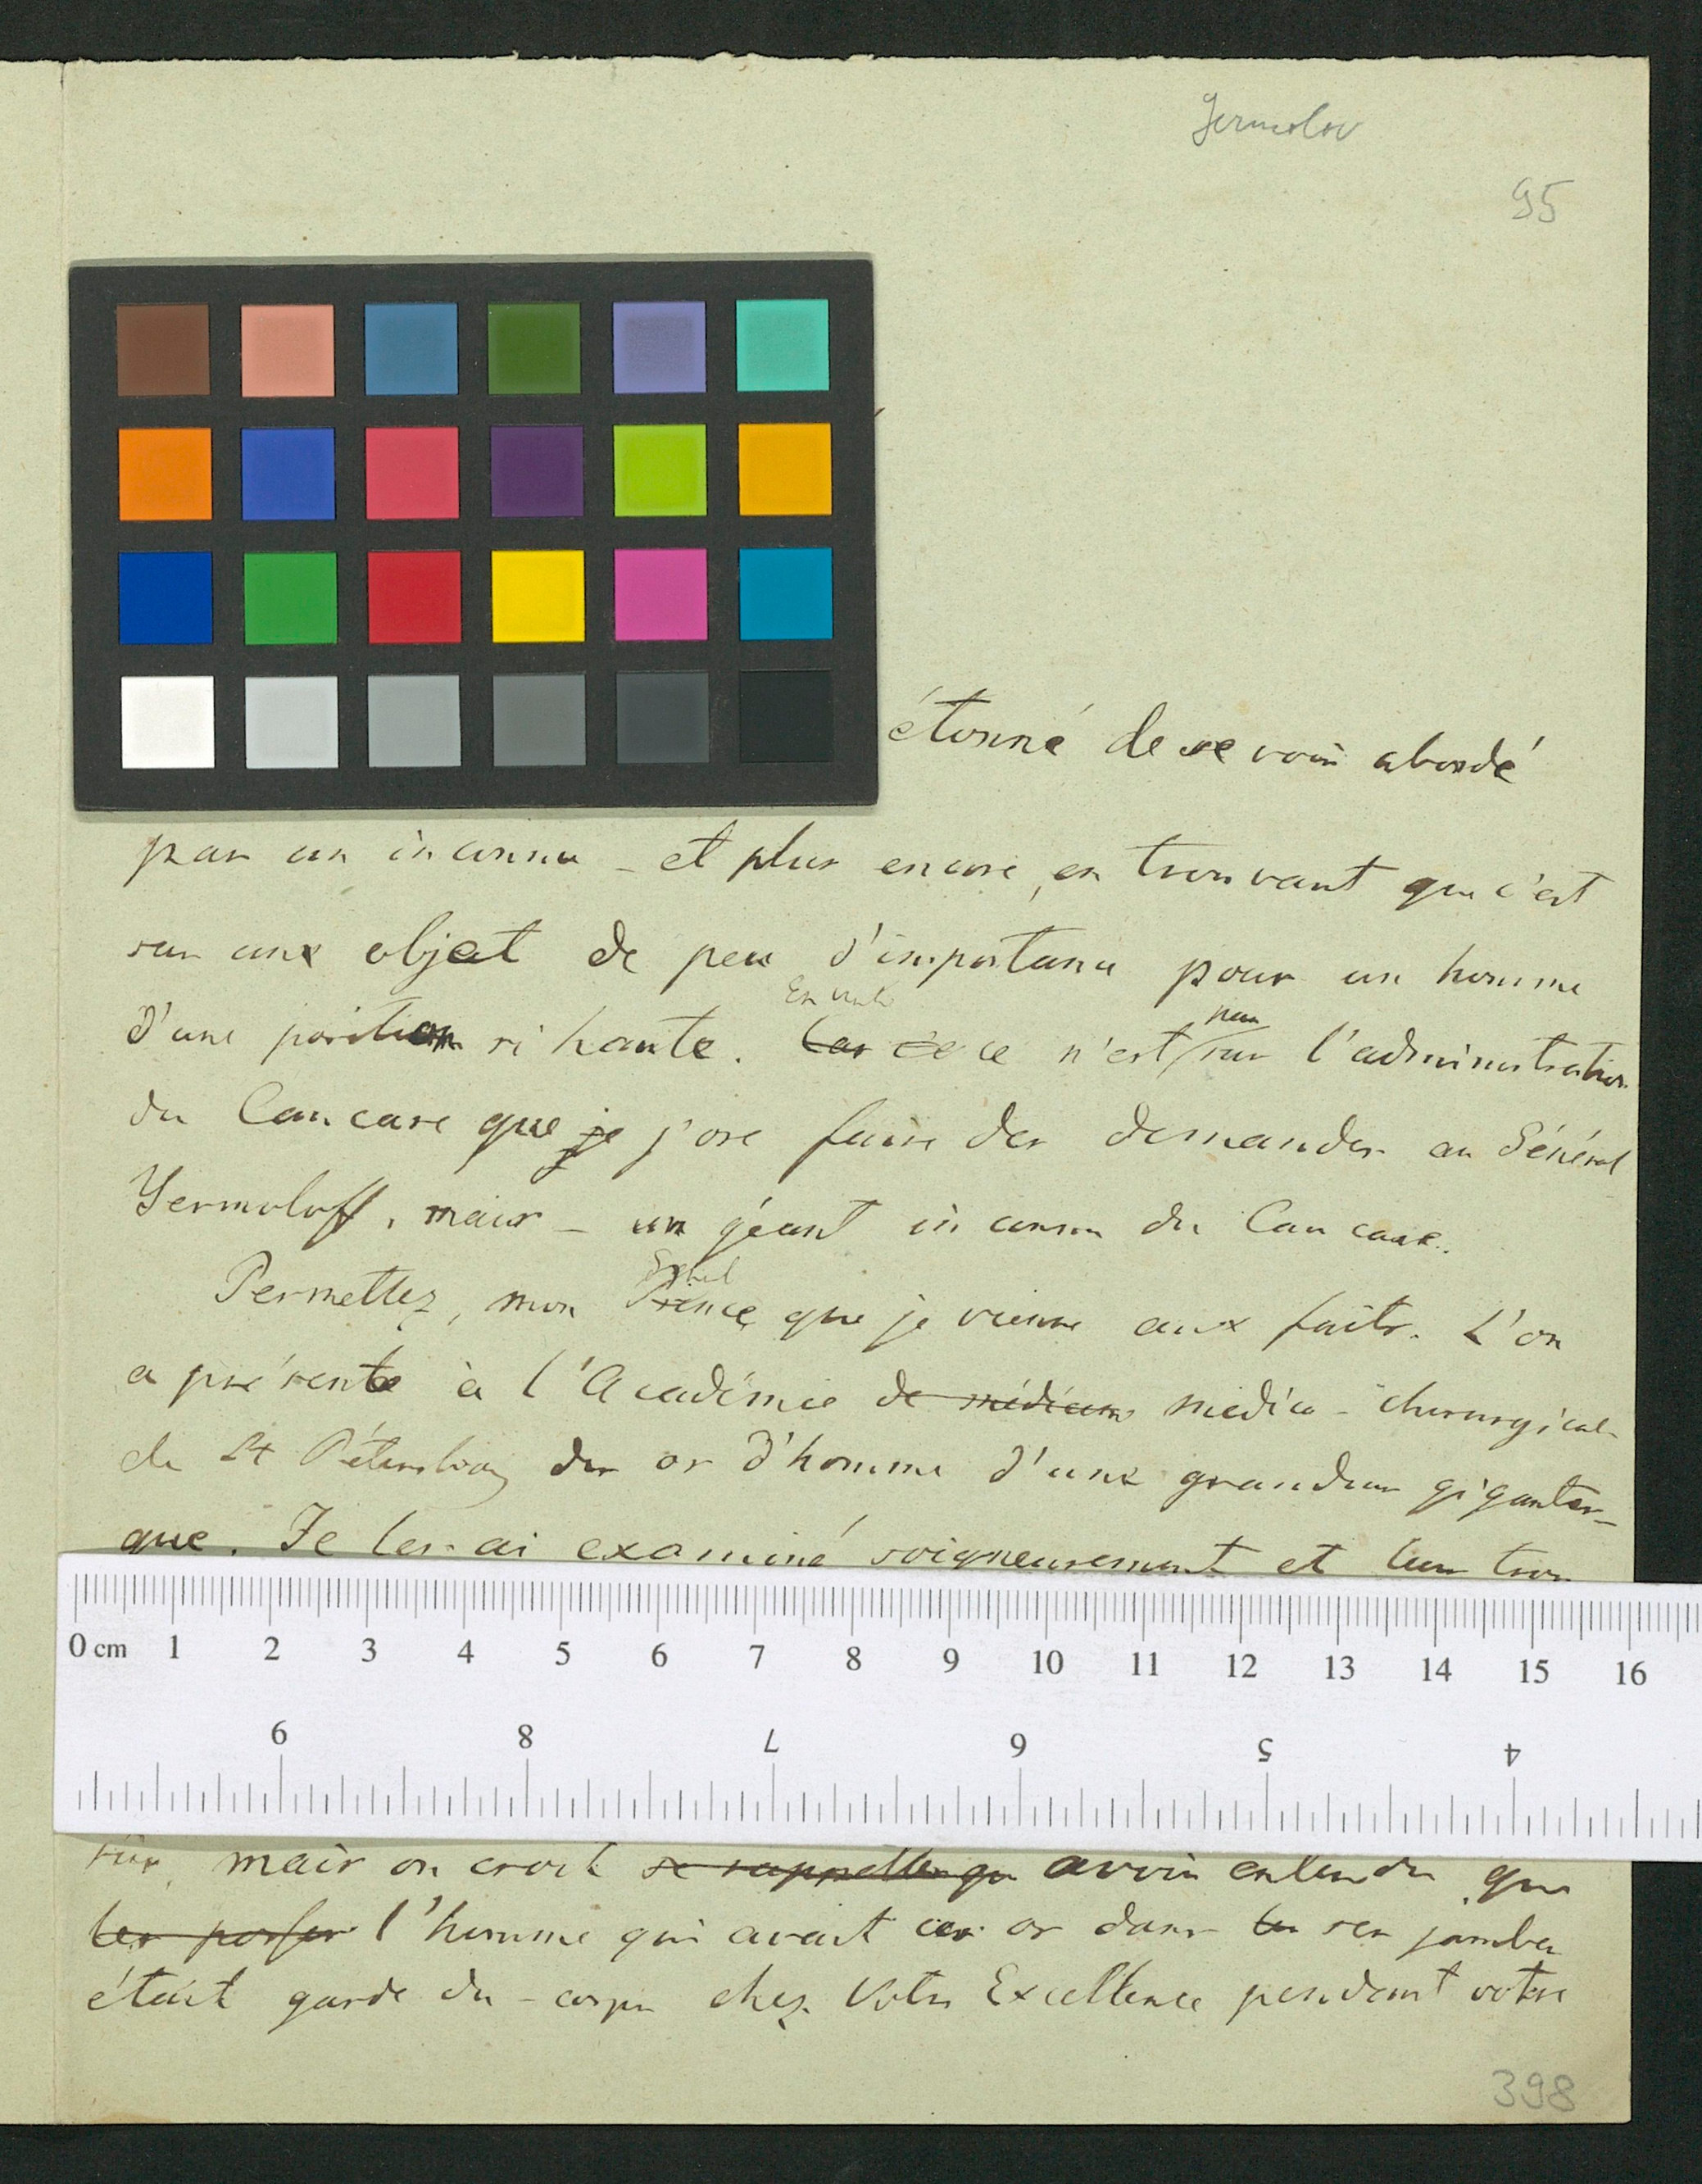 Jermolov
95
étonné de se voir abordé
par un inconnu - et plus encore, en trouvant que c'est
sur une objet de peu d'importance pour un homme
En
d'une position si haute. Car ce ce n'est pas sur l'administration
du Caucase que je j'ose faire des demandes au Général
Yermoloff, mais - un géant inconnu du Caucase.
Permettez, mon Prince que je vienne aux faits. L'on
a présenté à l'Académie de médecin medico-chirurgical
de St Pétersbourg des os d'homme d'une grandeur gigantes-
que. Je les ai examiné soigneusement et
0 cm 1 2 3 4 5 6 7 8 9 10 11 12 13 14 15 16
9 8 7 6 5 4
sûr, mais on croit se rappeller que avoir entendu que
l'homme qui avait ces os dans les ses jambes
était garde du-corps chez Votre Excellence pendant votre
398